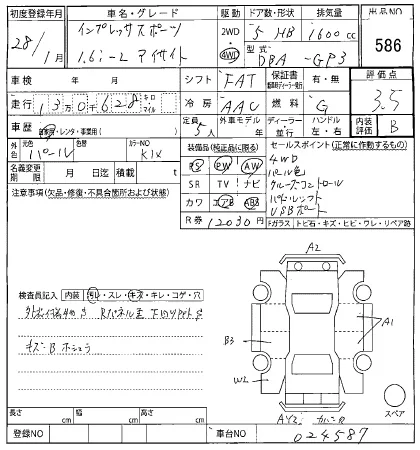 初度登録年月 車名・グレード 駆動 ドア数・形状 排気量 出品NO
28年 1月 インプレッサスポーツ 2WD 5 HB 1600cc 586
1.6i-L アイサイト 4WD 型式 DBA-GP3
車検 年 月 シフト FAT 保証書 有・無 評価点
走行 13万0千628 キロ マイル 冷房 AAC 燃料 G 3.5
車歴 自家用・レンタ・事業用( ) 定員 5人 外車モデル 年 ディーラー 並行 ハンドル 左・右 内装評価 B
外色 元色 パール 色替 カラーNO K1X 装備品(純正品に限る) セールスポイント(正常に作動するもの)
名義変更期限 月 日迄 積載 t PS PW AW 4WD
注意事項(欠品・修復・不具合箇所および状態) SR TV ナビ パール色
カワ エアB ABS クルーズコントロール
R券 12030円 パドルシフト
USBポート
Fガラス トビ石・キズ・ヒビ・ワレ・リペア跡
A2
検査員記入 内装 汚れ・スレ・キズ・キレ・コゲ・穴
A1
B3
キズ
W2
スペア
長さ cm 幅 cm 高さ cm
登録NO 車台NO 024587